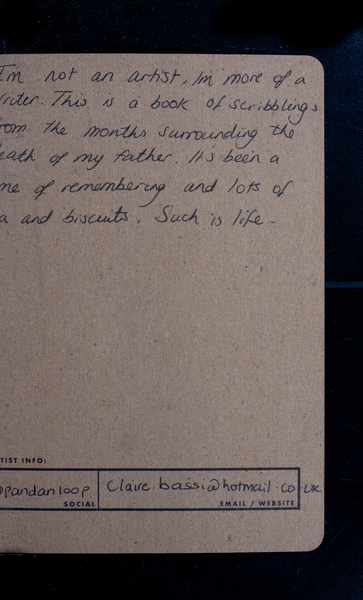 I'm not an artist, I'm more of a
riter. This is a book of scribblings
rom the months surrounding the
eath of my father. It's been a
me of remembering and lots of
a and biscuits. Such is life.
TIST INFO:
@pandanloop
SOCIAL
Claire.bassi@hotmail.co.uk
EMAIL / WEBSITE